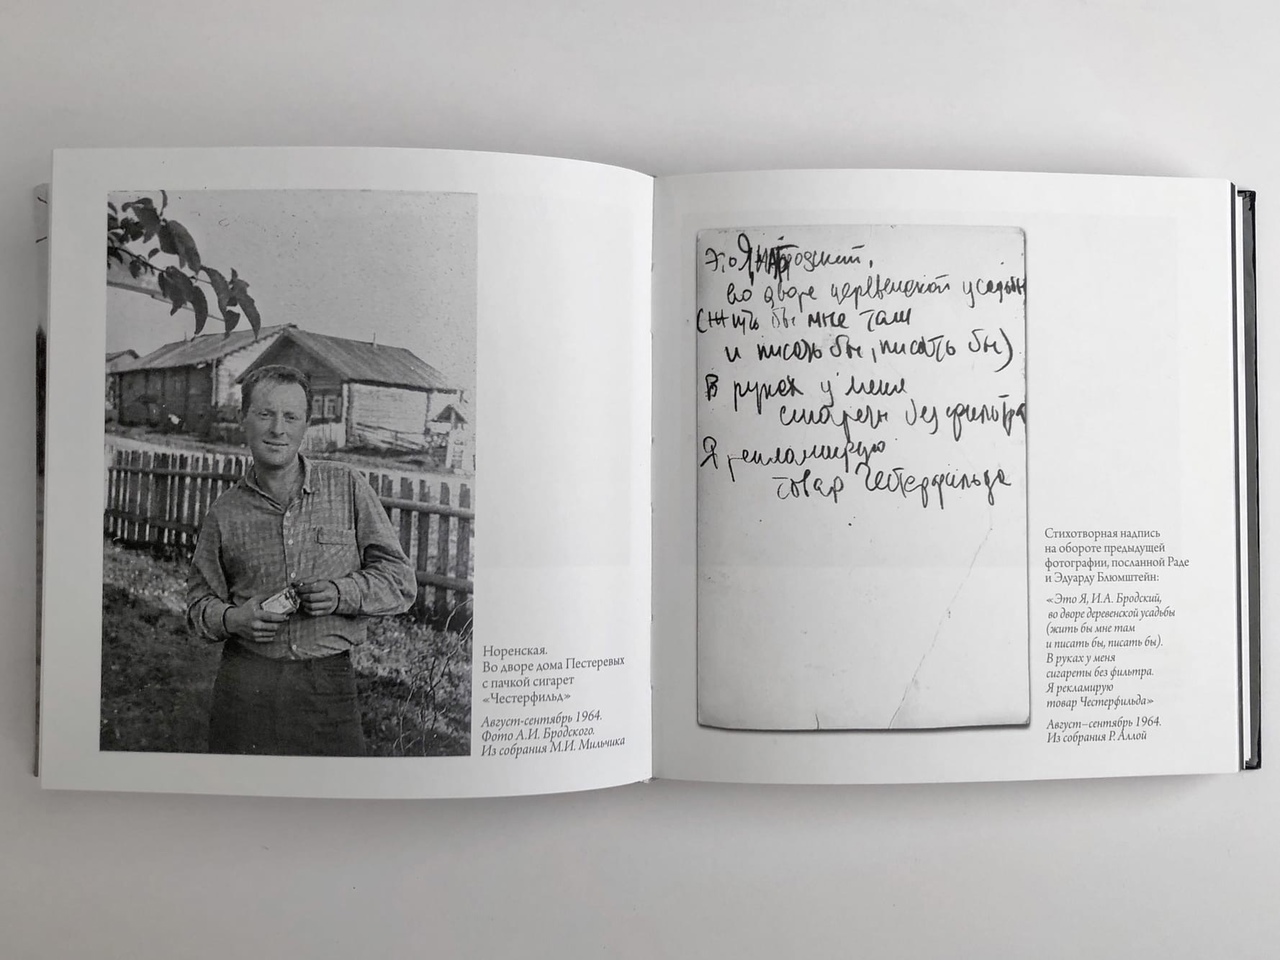 Норенская.
Во дворе дома Пестеревых
с пачкой сигарет
«Честерфильд»
Август-сентябрь 1964.
Фото А.И. Бродского.
Из собрания М.И. Мильчика
Это Я, И.А. Бродский,
во дворе деревенской усадьбы
(жить бы мне там
и писать бы, писать бы)
В руках у меня
сигареты без фильтра
Я рекламирую
товар Честерфильда
Стихотворная надпись
на обороте предыдущей
фотографии, посланной Раде
и Эдуарду Блюмштейн:
«Это Я, И.А. Бродский,
во дворе деревенской усадьбы
(жить бы мне там
и писать бы, писать бы).
В руках у меня
сигареты без фильтра.
Я рекламирую
товар Честерфильда»
Август–сентябрь 1964.
Из собрания Р. Аллой